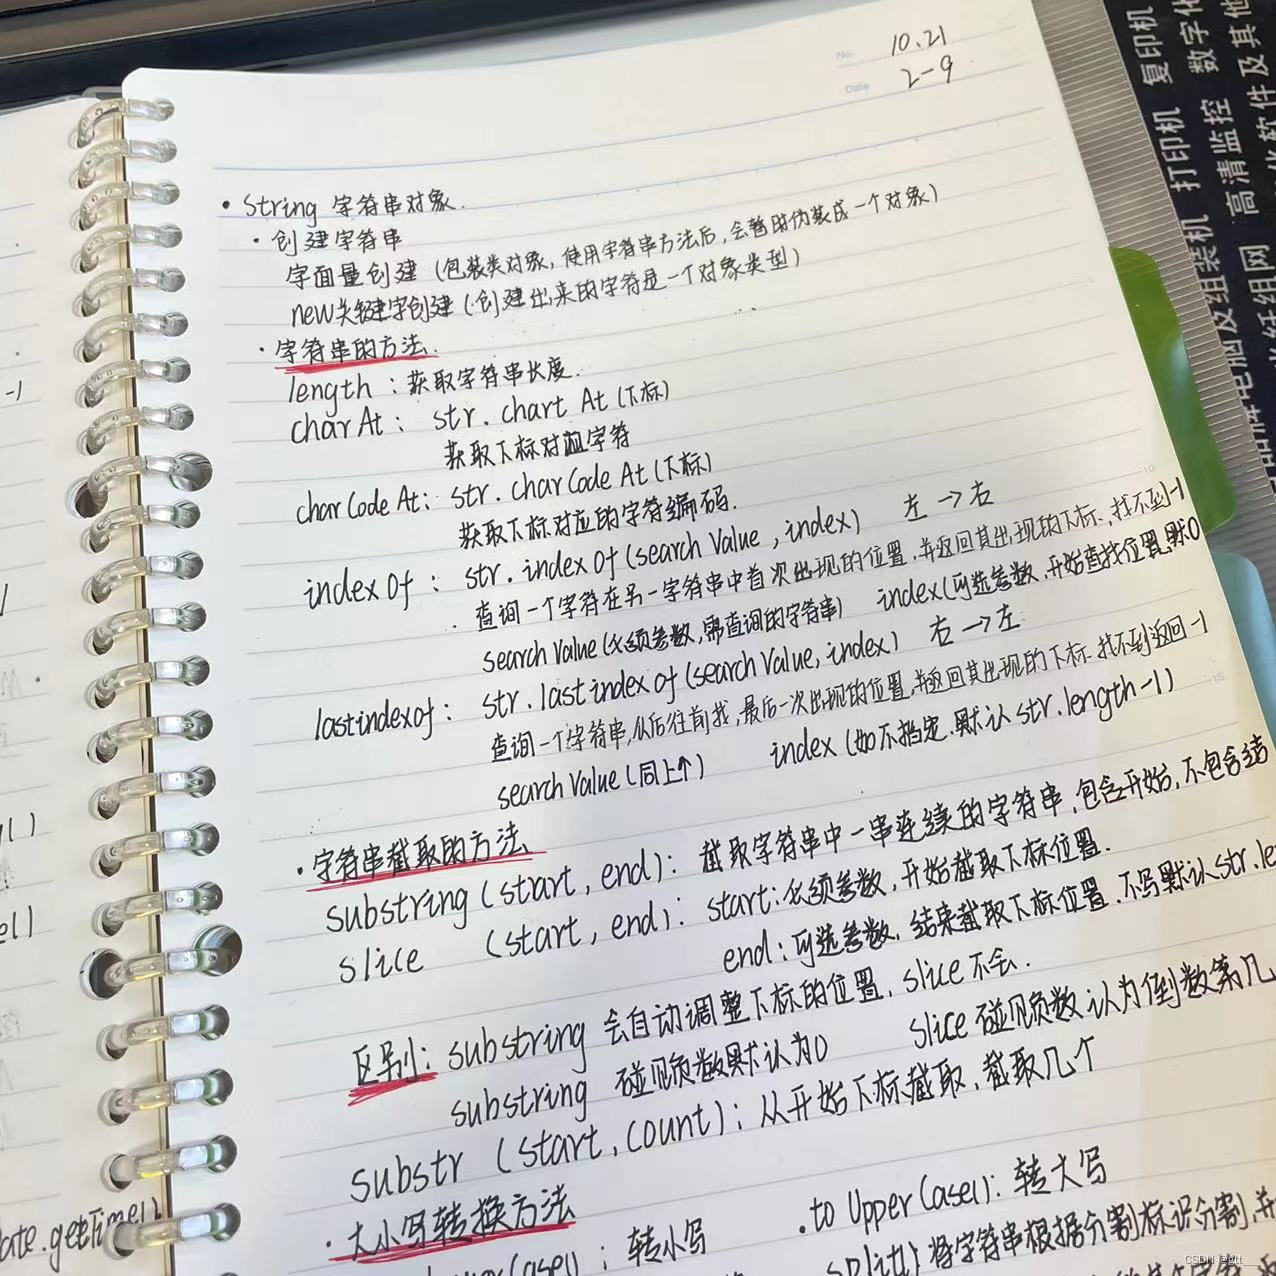 No. 10.21
Date 2-9
• String 字符串对象.
· 创建字符串
字面量创建 (包装类对象, 使用字符串方法后, 会暂时伪装成一个对象)
new关键字创建 (创建出来的字符是一个对象类型)
· 字符串的方法.
length : 获取字符串长度.
charAt : str. chart At (下标)
获取下标对应字符
charCode At: str. charCode At (下标)
获取下标对应的字符编码.
index Of : str. index Of (search Value, index) 左 → 右
查询一个字符在另一字符串中首次出现的位置, 并返回其出现的下标. 找不到-1
search Value (必须参数, 需查询的字符串) index(可选参数, 开始查找位置, 默0
lastindexof : str. lastindex of (search Value, index) 右 → 左
查询一个字符串, 从后往前找, 最后一次出现的位置, 并返回其出现的下标. 找不到返回-1
search Value (同上↑) index (如不指定. 默认 str.length-1)
· 字符串截取的方法
substring (start, end): 截取字符串中一串连续的字符串, 包含开始, 不包含结
slice (start, end): start: 必须参数, 开始截取下标位置.
end: 可选参数, 结束截取下标位置. 不写默认.str.le
区别: substring 会自动调整下标的位置, slice 不会.
substring 碰见负数默认为0 slice 碰见负数认为倒数第几
substr (start, count): 从开始下标截取, 截取几个
· 大小写转换方法
: 转小写 . to UpperCase(): 转大写
split() 将字符串根据分割标识分割, 并
-1
ate.getTime()
复印机 数字化
打印机 高清监控
软件及其他
品牌电脑及组装机
CSDN @gtt